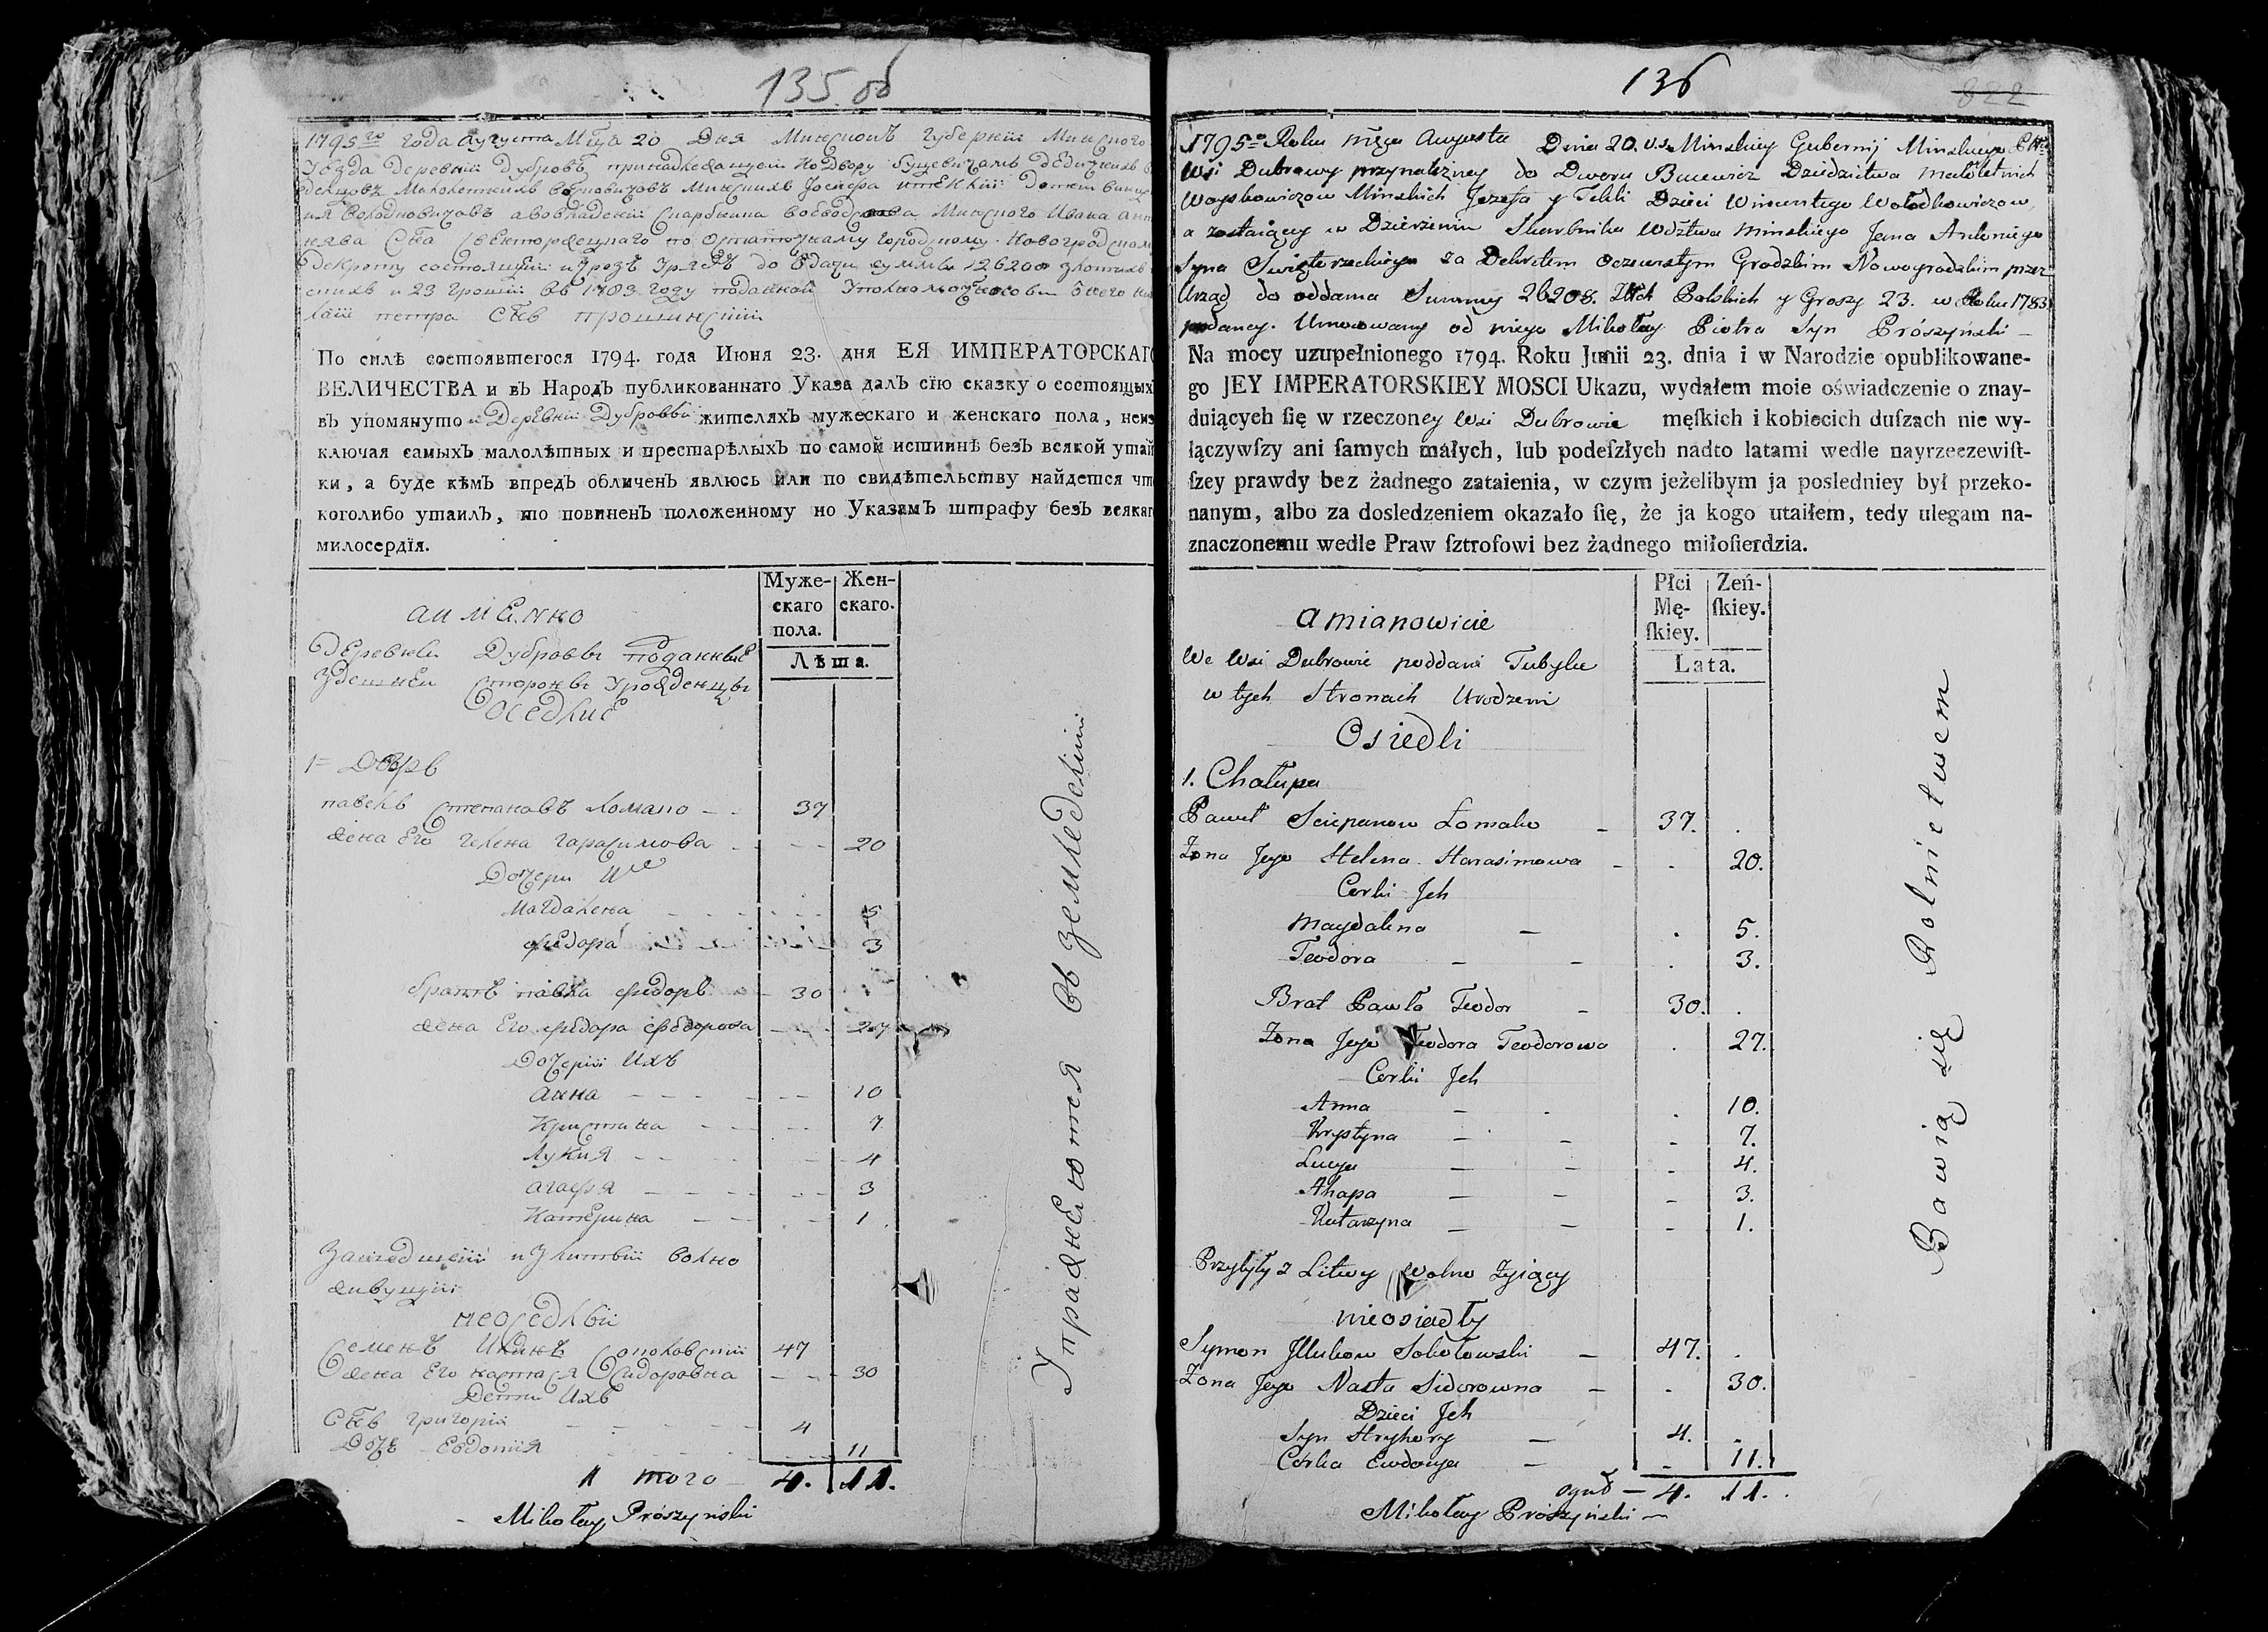 135 об
1795го года Августа Мца 20 Дня Минской Губернии Минского
Уезда Деревни Дубровъ принадлежащей ко Двору
Минскихъ Иосифа
Минского Ивана
23 въ 1783 году
петра
По силѣ состоявшегося 1794. года Июня 23. дня ЕЯ ИМПЕРАТОРСКАГО
ВЕЛИЧЕСТВА и въ Народъ публикованнаго Указа далъ сїю сказку о состоящихъ
въ упомянуто й Деревни Дубровы жителяхъ мужескаго и женскаго пола, неиз
ключая самыхъ малолѣтныхъ и престарѣлыхъ по самой истиннѣ безъ всякой утай
ки, а буде кѣмъ впредъ обличенъ явлюсь или по свидѣтельству найдется что
коголибо утаилъ, то повиненъ положенному по Указамъ штрафу безъ всякаго
милосердїя.
Муже-
скаго
пола.
Жен-
скаго.
Лѣта.
а и мЕнно
Деревни Дубровы подданные
Здешней стороны Урожденцы
Оседлие
1= Дворъ
павелъ Степановъ Ломако - - 37
жена Его гелена гарасимова - - - 20
Дочери Ихъ
Магдалена - - - 5
фЕдора - - - 3
братъ павла фЕдоръ - 30
жена Его фЕдора фЕдорова - - - 27
Дочерїи Ихъ
анна - - - 10
Кристина - - - 7
Лукия - - - 4
агафия - - - 3
Катерина - - - 1
Зашедшеїи изЛитвы волно
живущїи
неоседлы
Семенъ Соколовский 47
жена Его настася Сидоровна - - - 30
Дети Ихъ
Снъ григорїй - - - 4
Дочь Евдокия - - - 11
И того 4. 11.
Mikołay Prószyński
Упражняются въ земледелїи
136
822
1795o Roku Mca Augusta Dnia 20. v.s. Minskiey Gubernij Minskiego Pttu
Wsi Dubrowy przynależney do Dworu Bucewicz Dziedzictwa małoletnich
Woyskowiczow Minskich Jozefa y Tekli Dzieci Wincentego Wołodkowiczow,
a zostaiącey w Dzierżeniu Skarbnika Wdztwa Minskiego Jana Antoniego
Syna Swiętorzeckiego za Dekretem oczewistym Grodzkim Nowogrodzkim przez
Urząd do oddania Summy 26208. Złłch Polskich y Groszy 23. w Roku 1783
podaney. Umocowany od niego Mikołay Piotra Syn Prószyński —
Na mocy uzupełnionego 1794. Roku Junii 23. dnia i w Narodzie opublikowane-
go JEY IMPERATORSKIEY MOSCI Ukazu, wydałem moie oświadczenie o znay-
duiących ſię w rzeczoney Wsi Dubrowie męſkich i kobiecich duſzach nie wy-
łączywſzy ani ſamych małych, lub podeſzłych nadto latami wedle nayrzeczewiſt-
ſzey prawdy bez żadnego zataienia, w czym jeżelibym ja posledniey był przeko-
nanym, albo za dosledzeniem okazało ſię, że ja kogo utaiłem, tedy ulegam na-
znaczonemu wedle Praw ſztrofowi bez żadnego miłoſierdzia.
Płci
Mę-
ſkiey.
Żeń-
ſkiey.
Lata.
a mianowicie
We Wsi Dubrowie poddani Tubylce
w tych Stronach Urodzeni
Osiedli
1. Chałupa
Paweł Sciepanow Łomako - 37. .
Żona Jego Helena Harasimowa - . 20.
Corki Jch
Magdalena — . 5.
Teodora — - . 3.
Brat Pawła Teodor - 30. .
Żona Jego Teodora Teodorowa . 27.
Corki Jch
Anna — . . 10.
Krystyna — - - 7.
Lucya — - - 4.
Ahapa — - - 3.
Katarzyna — - - 1.
Przybyły z Litwy wolno żyiący
nieosiadły
Symon Sokołowski - 47. .
Żona Jego Nasta Sidorowna - . 30.
Dzieci Jch
Syn Hryhory — 4. .
Córka Ewdokya — - 11.
oguł — 4. 11.
Mikołay Prószyński —
Bawią się Rolnictwem